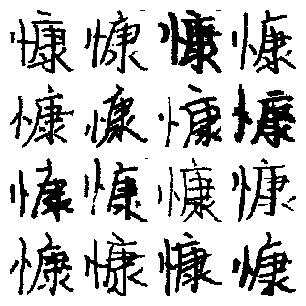 慷慷慷慷
慷慷慷慷
慷慷慷慷
慷慷慷慷